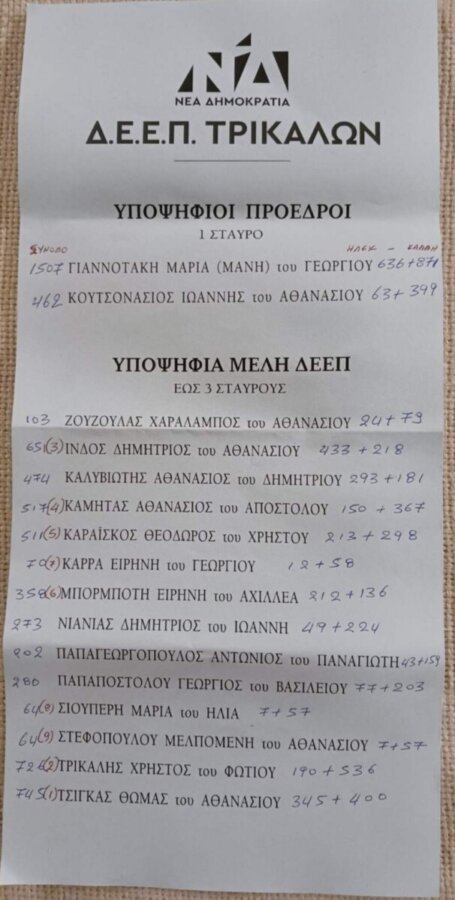 ΝΔ
ΝΕΑ ΔΗΜΟΚΡΑΤΙΑ
Δ.Ε.Ε.Π. ΤΡΙΚΑΛΩΝ
ΥΠΟΨΗΦΙΟΙ ΠΡΟΕΔΡΟΙ
1 ΣΤΑΥΡΟ
ΣΥΝΟΛΟ ΗΛΕΚ - ΚΑΛΠΗ
1507 ΓΙΑΝΝΟΤΑΚΗ ΜΑΡΙΑ (ΜΑΝΗ) του ΓΕΩΡΓΙΟΥ 636+871
462 ΚΟΥΤΣΟΝΑΣΙΟΣ ΙΩΑΝΝΗΣ του ΑΘΑΝΑΣΙΟΥ 63+399
ΥΠΟΨΗΦΙΑ ΜΕΛΗ ΔΕΕΠ
ΕΩΣ 3 ΣΤΑΥΡΟΥΣ
103 ΖΟΥΖΟΥΛΑΣ ΧΑΡΑΛΑΜΠΟΣ του ΑΘΑΝΑΣΙΟΥ 24+79
651(3) ΙΝΔΟΣ ΔΗΜΗΤΡΙΟΣ του ΑΘΑΝΑΣΙΟΥ 433+218
474 ΚΑΛΥΒΙΩΤΗΣ ΑΘΑΝΑΣΙΟΣ του ΔΗΜΗΤΡΙΟΥ 293+181
517(4) ΚΑΜΗΤΑΣ ΑΘΑΝΑΣΙΟΣ του ΑΠΟΣΤΟΛΟΥ 150+367
511(5) ΚΑΡΑΪΣΚΟΣ ΘΕΟΔΩΡΟΣ του ΧΡΗΣΤΟΥ 213+298
70(7) ΚΑΡΡΑ ΕΙΡΗΝΗ του ΓΕΩΡΓΙΟΥ 12+58
358(6) ΜΠΟΡΜΠΟΤΗ ΕΙΡΗΝΗ του ΑΧΙΛΛΕΑ 212+136
273 ΝΙΑΝΙΑΣ ΔΗΜΗΤΡΙΟΣ του ΙΩΑΝΝΗ 49+224
202 ΠΑΠΑΓΕΩΡΓΟΠΟΥΛΟΣ ΑΝΤΩΝΙΟΣ του ΠΑΝΑΓΙΩΤΗ 43+159
280 ΠΑΠΑΠΟΣΤΟΛΟΥ ΓΕΩΡΓΙΟΣ του ΒΑΣΙΛΕΙΟΥ 77+203
64(8) ΣΙΟΥΠΕΡΗ ΜΑΡΙΑ του ΗΛΙΑ 7+57
64(9) ΣΤΕΦΟΠΟΥΛΟΥ ΜΕΛΠΟΜΕΝΗ του ΑΘΑΝΑΣΙΟΥ 7+57
726(2) ΤΡΙΚΑΛΗΣ ΧΡΗΣΤΟΣ του ΦΩΤΙΟΥ 190+536
745(1) ΤΣΙΓΚΑΣ ΘΩΜΑΣ του ΑΘΑΝΑΣΙΟΥ 345+400